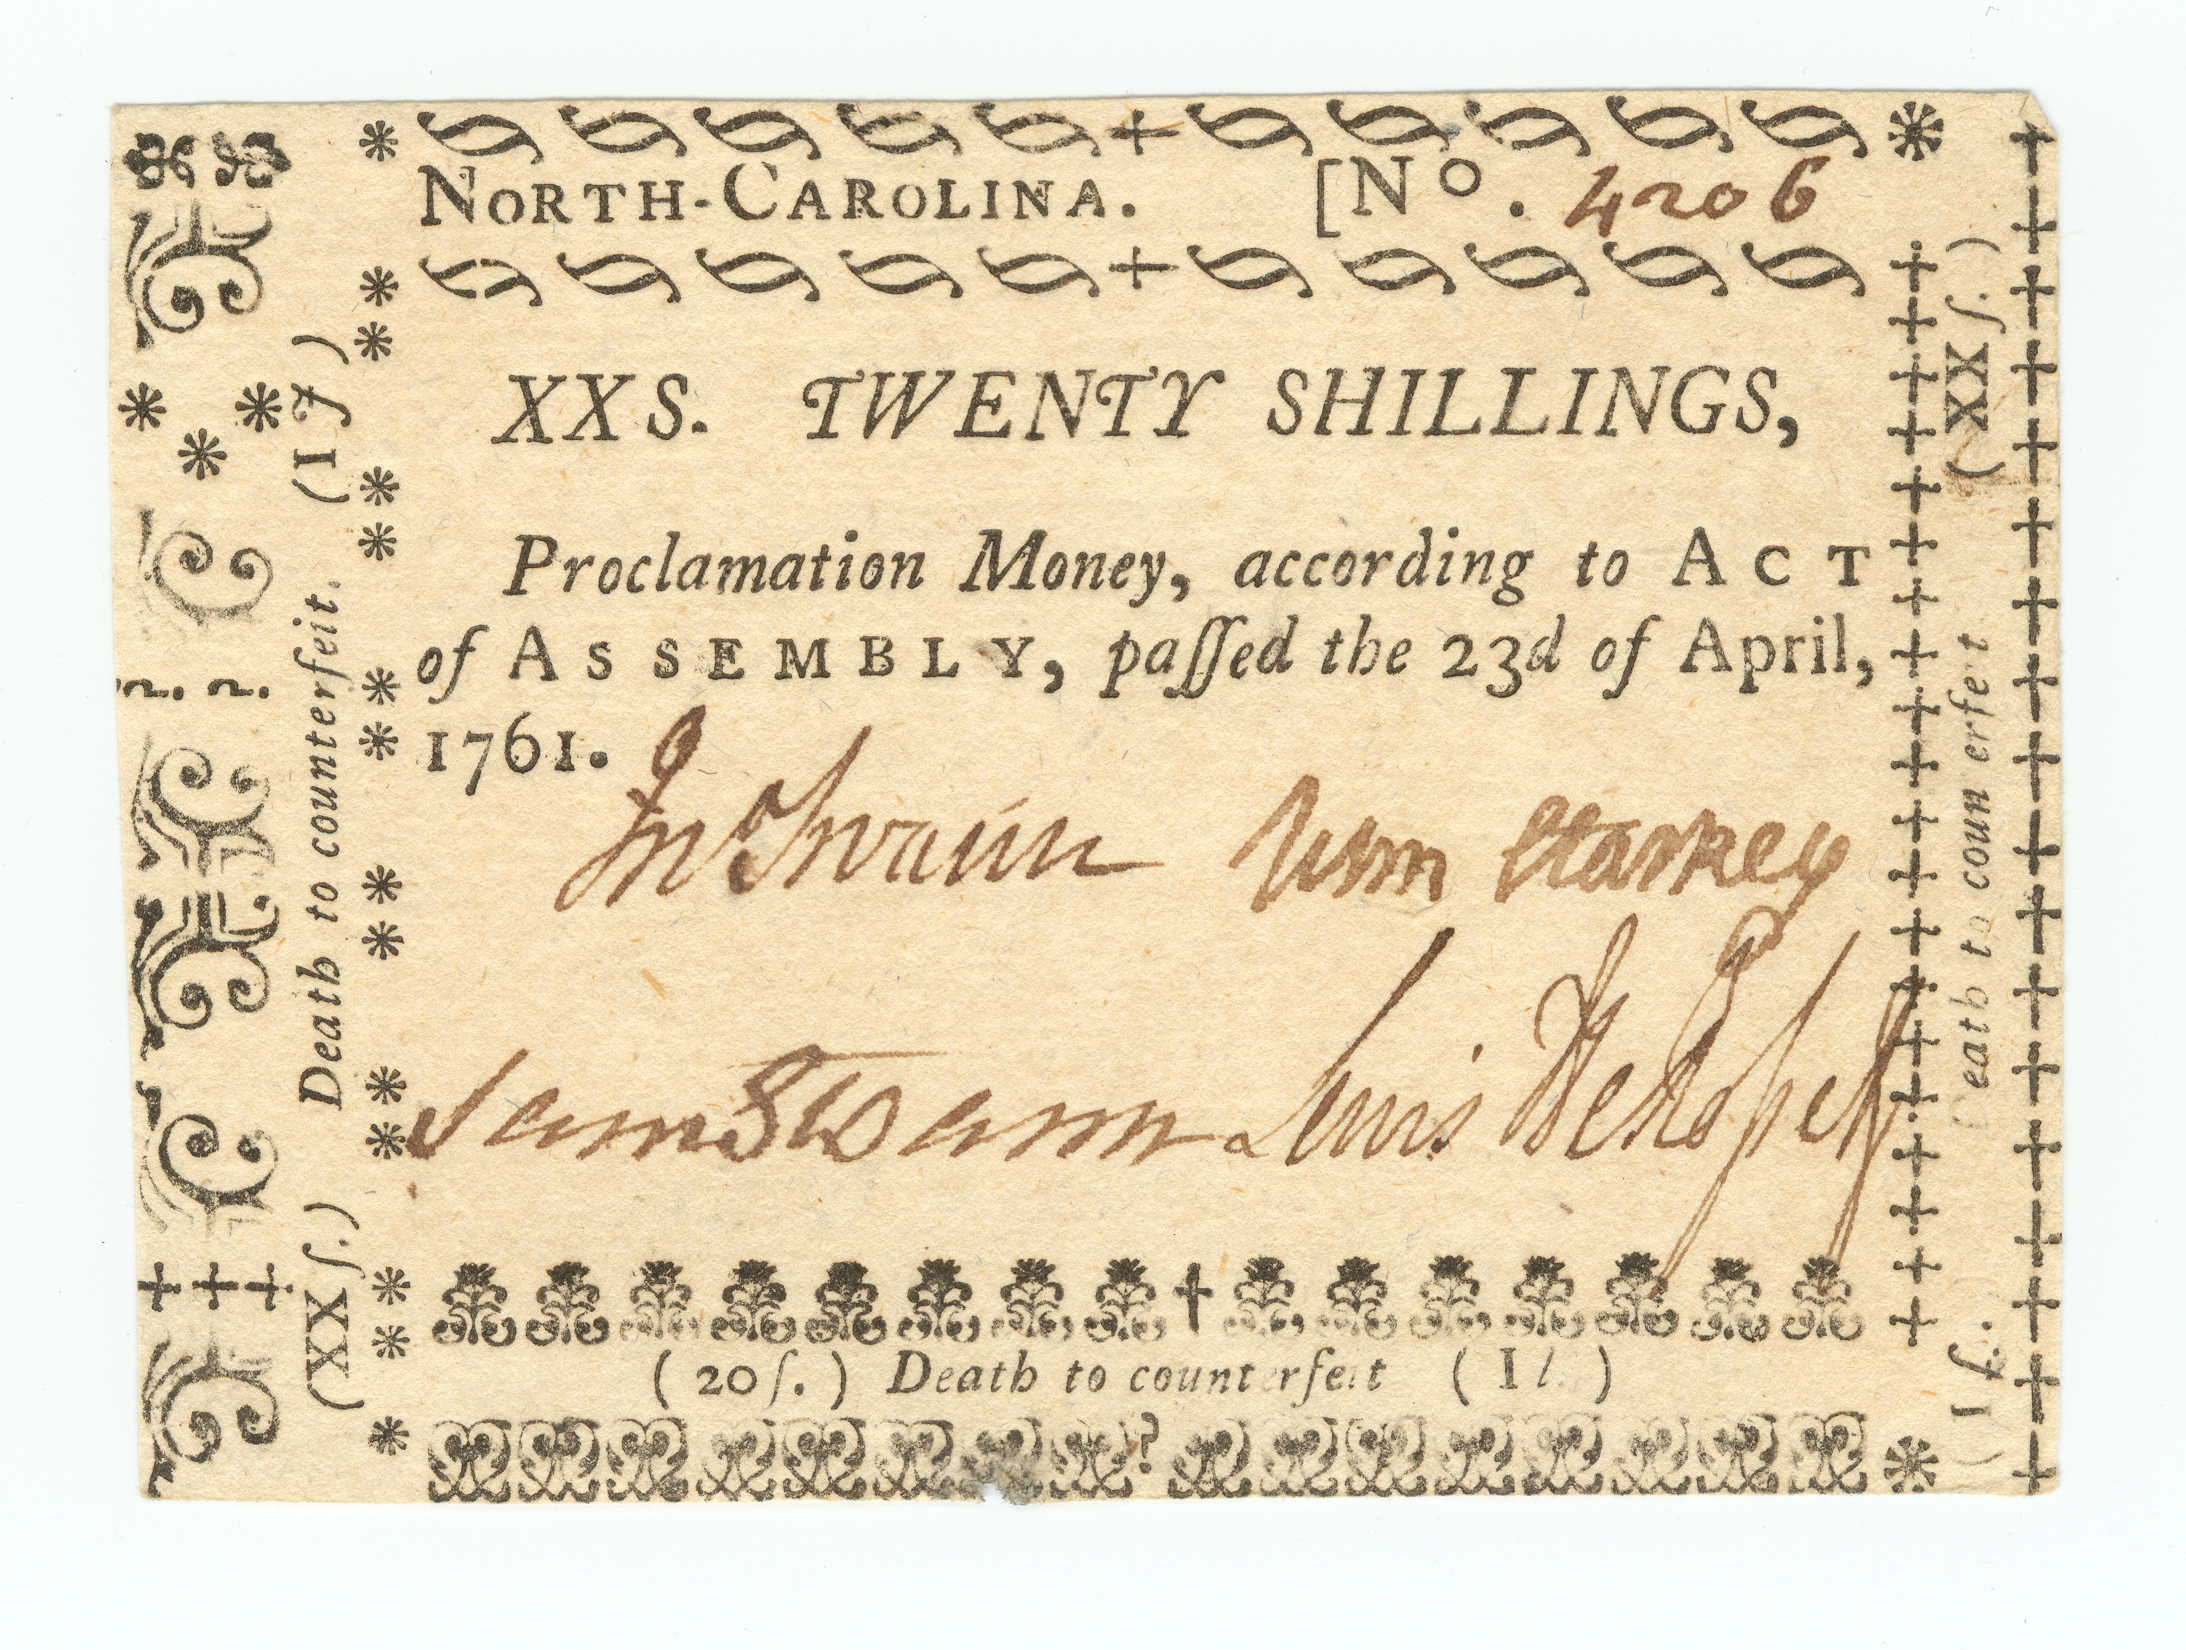 NORTH-CAROLINA. [No. 4206
XXS. TWENTY SHILLINGS,
Proclamation Money, according to ACT
of ASSEMBLY, paſſed the 23d of April,
1761.
Jno Swann Wm Starkey
Sam Swann Lewis DeRosset
(20ſ.) Death to counterfeit (I l.)
(XXſ.) Death to counterfeit.
(XXſ.)